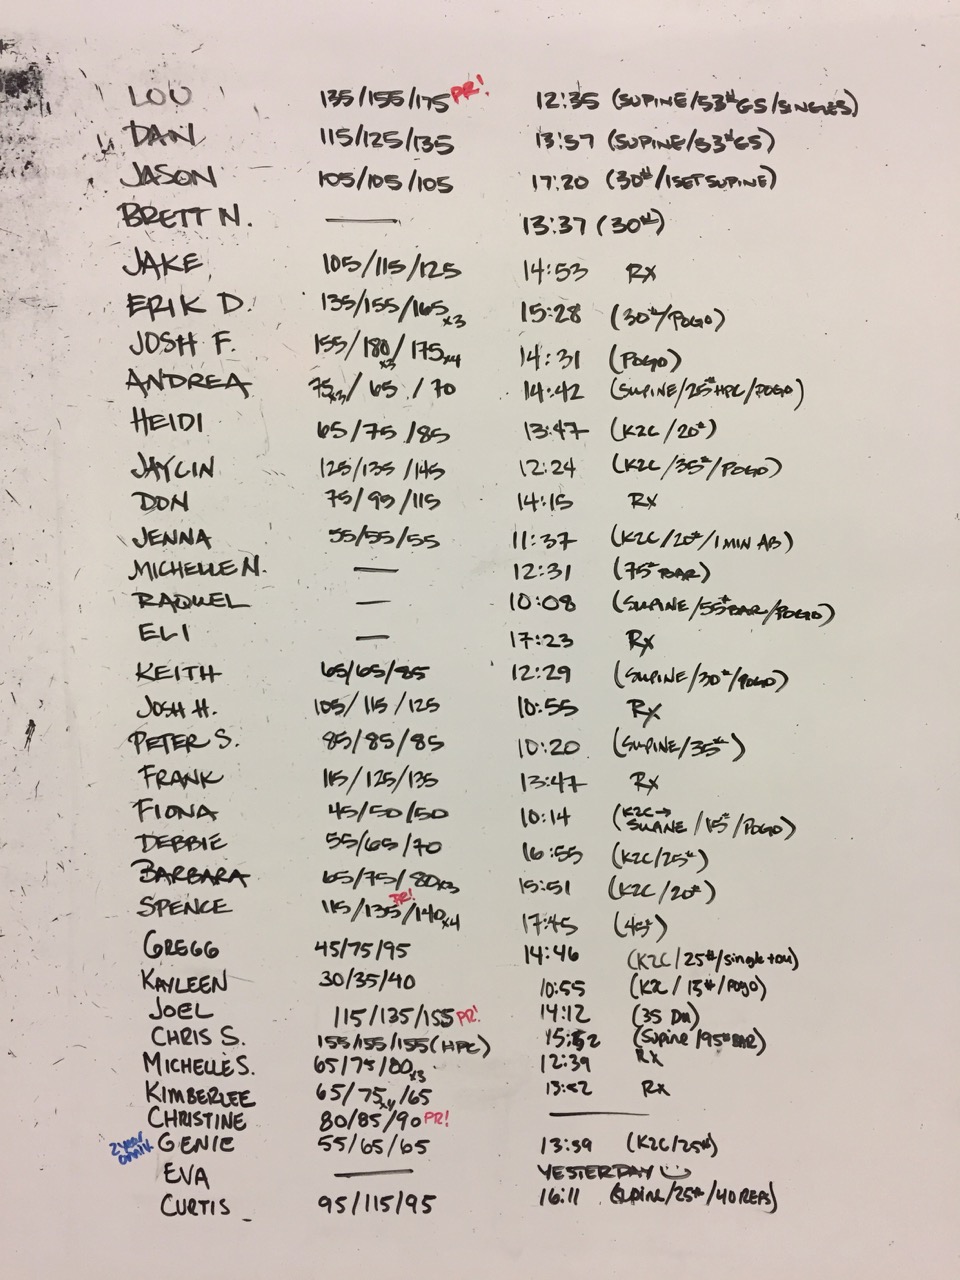 LOU 135/155/175 PR! 12:35 (SUPINE/53# GS/SINGLES)
DAN 115/125/135 13:57 (SUPINE/53# GS)
JASON 105/105/105 17:20 (30#/1 SET SUPINE)
BRETT N. — 13:37 (30#)
JAKE 105/115/125 14:53 RX
ERIK D. 135/155/165x3 15:28 (30#/POGO)
JOSH F. 155/180x3/175x4 14:31 (POGO)
ANDREA 75x3/65/70 14:42 (SUPINE/25# HPC/POGO)
HEIDI 65/75/85 13:47 (K2C/20#)
JAYCIN 125/135/145 12:24 (K2C/35#/POGO)
DON 75/95/115 14:15 RX
JENNA 55/55/55 11:37 (K2C/20#/1 MIN AB)
MICHELLE N. — 12:31 (75# BAR)
RAQUEL — 10:08 (SUPINE/55# BAR/POGO)
ELI — 17:23 RX
KEITH 65/65/85 12:29 (SUPINE/30#/POGO)
JOSH H. 105/115/125 10:55 RX
PETER S. 85/85/85 10:20 (SUPINE/35#)
FRANK 115/125/135 13:47 RX
FIONA 45/50/50 10:14 (K2C→ /15#/POGO)
DEBBIE 55/65/70 16:55 (K2C/25#)
BARBARA 65/75/80x3 15:51 (K2C/20#)
SPENCE 115/135 PR!/140x4 17:45 (45#)
GREGG 45/75/95 14:46 (K2C/25#/single
KAYLEEN 30/35/40 10:55 (K2C/15#/POGO)
JOEL 115/135/155 PR! 14:12 (35 DU)
CHRIS S. 155/155/155 (HPC) (SUPINE/95# BAR)
MICHELLE S. 65/75/80x3 12:39 RX
KIMBERLEE 65/75x4/65 13:52 RX
CHRISTINE 80/85/90 PR! —
2 year GENIE 55/65/65 13:39 (K2C/25#)
EVA — YESTERDAY
CURTIS 95/115/95 16:11 (SUPINE/25#/40 REPS)